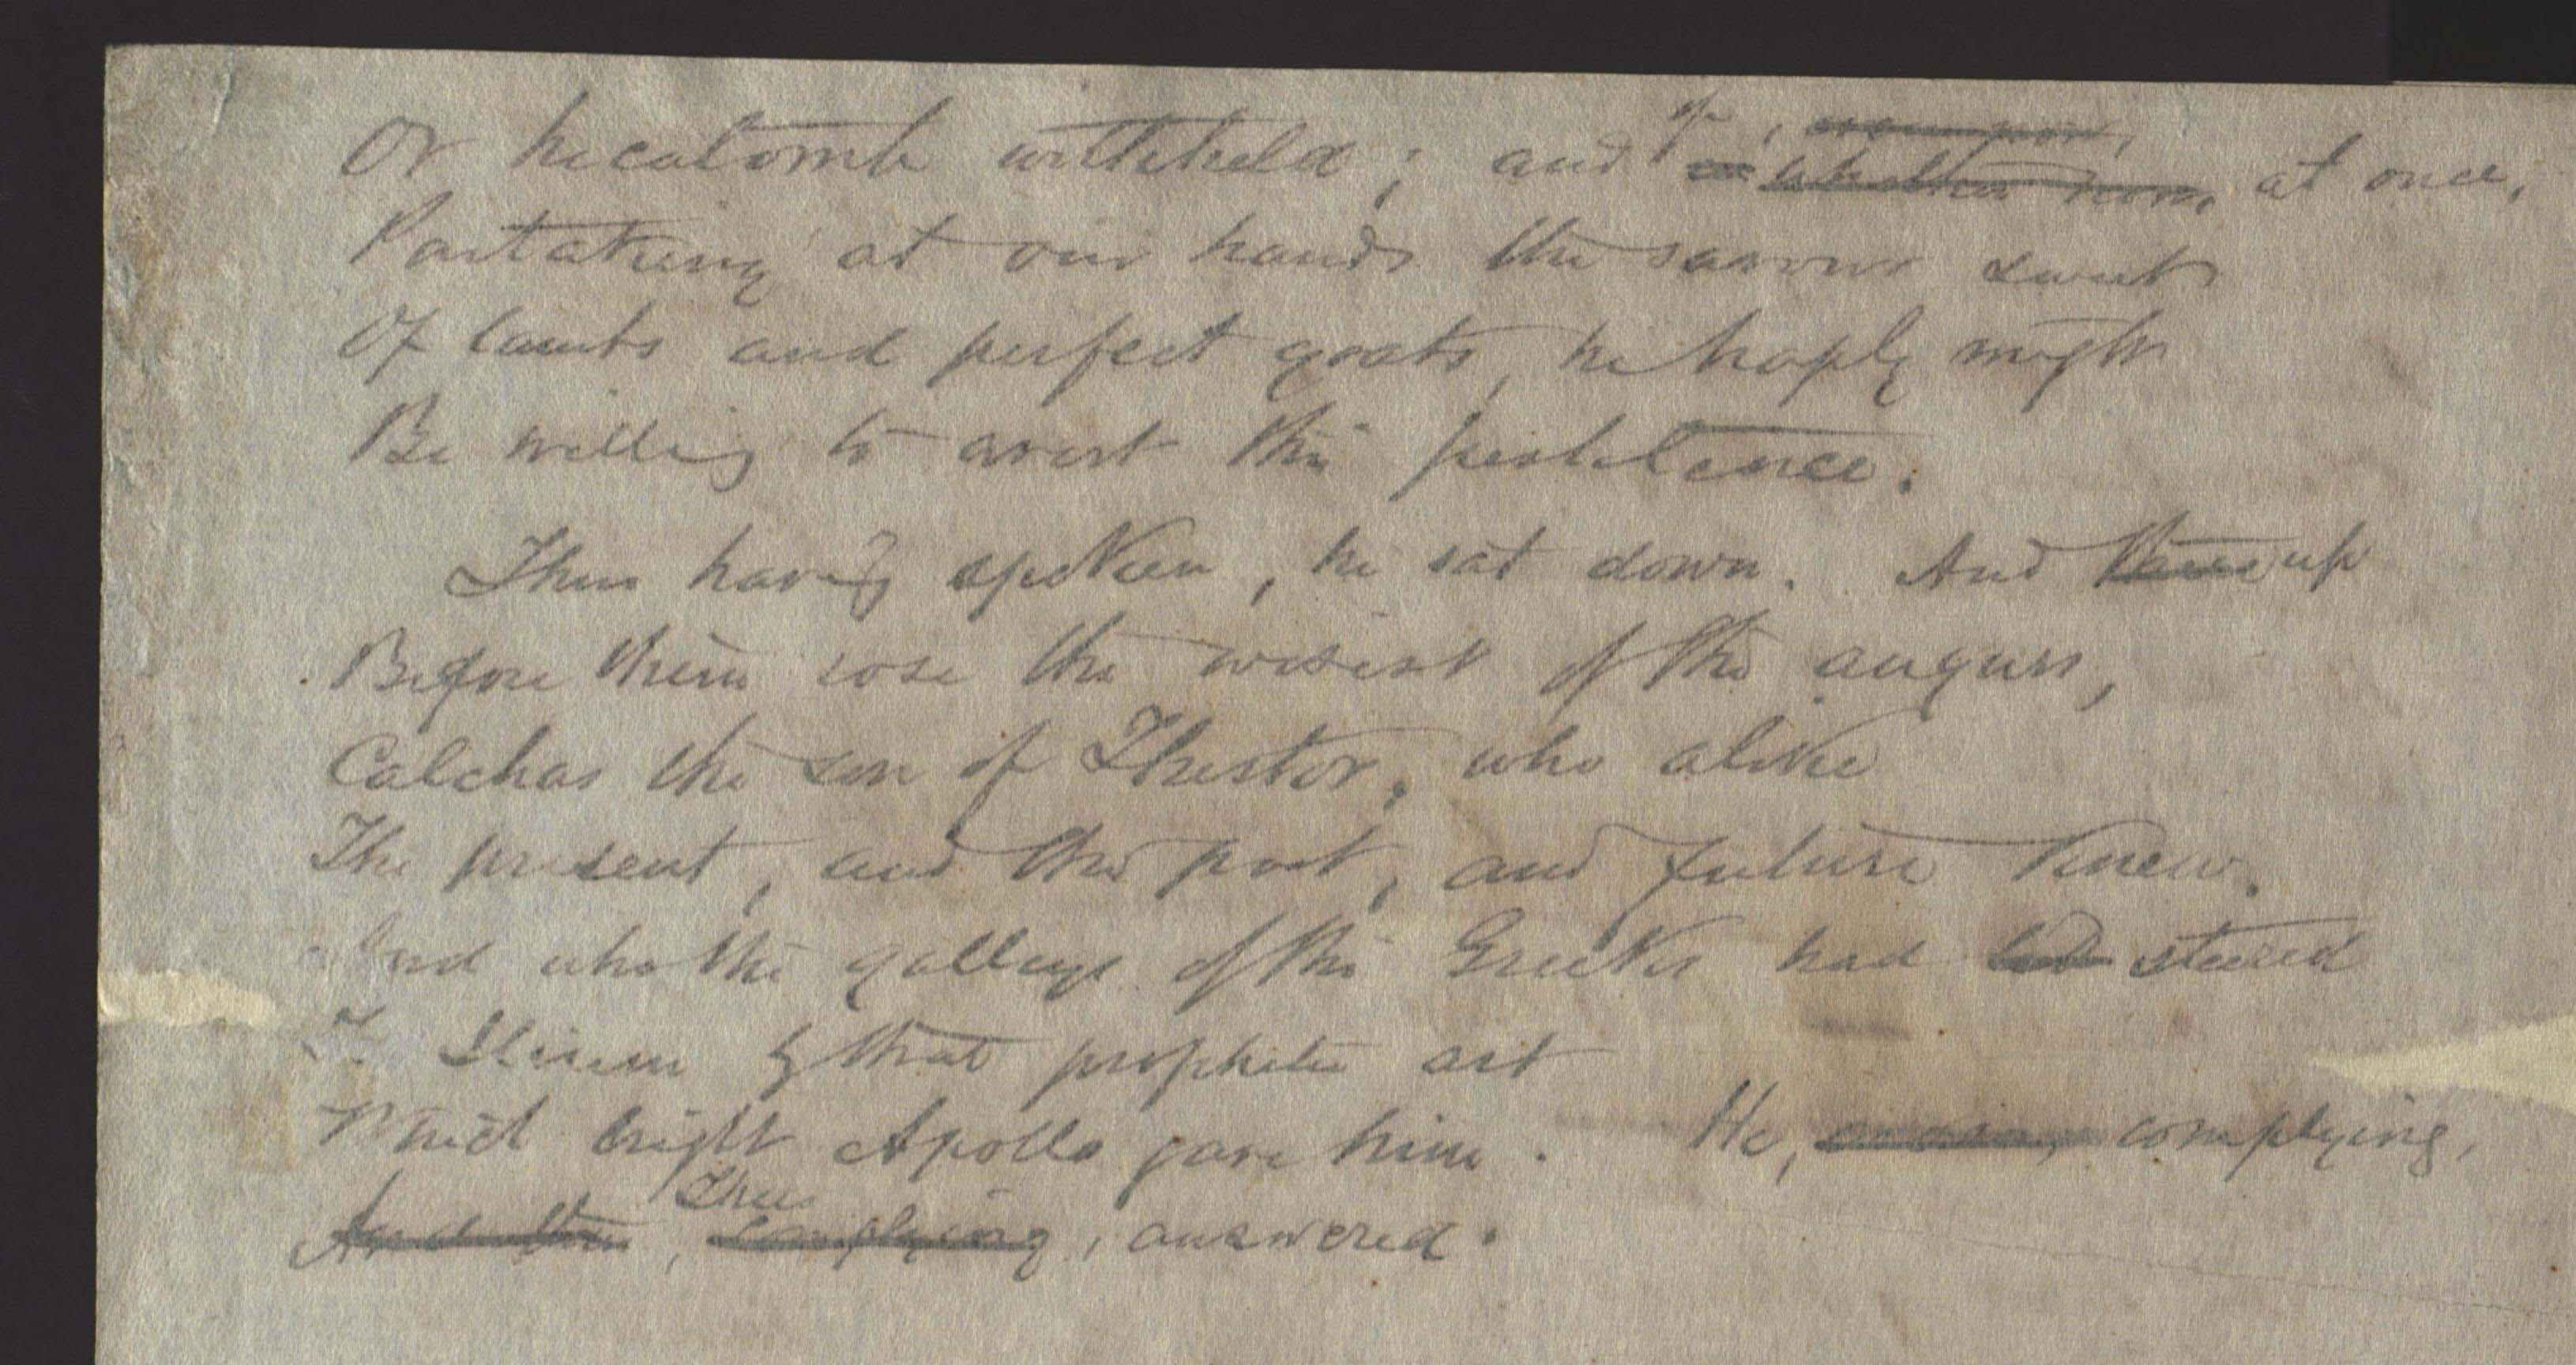 Or hecatomb withheld; and if, at once,
Partaking at our hands the savour sweet
Of lambs and perfect goats, he haply might
Be willing to avert this pestilence.
Thus having spoken, he sat down. And up
Before them rose the wisest of the augurs,
Calchas the son of Thestor, who alike
The present, and the past, and future knew.
And who the galleys of the Greeks had led steered
To Ilium by that prophetic art
Which bright Apollo gave him. He, complying,
Thus
And then, complying, answered.